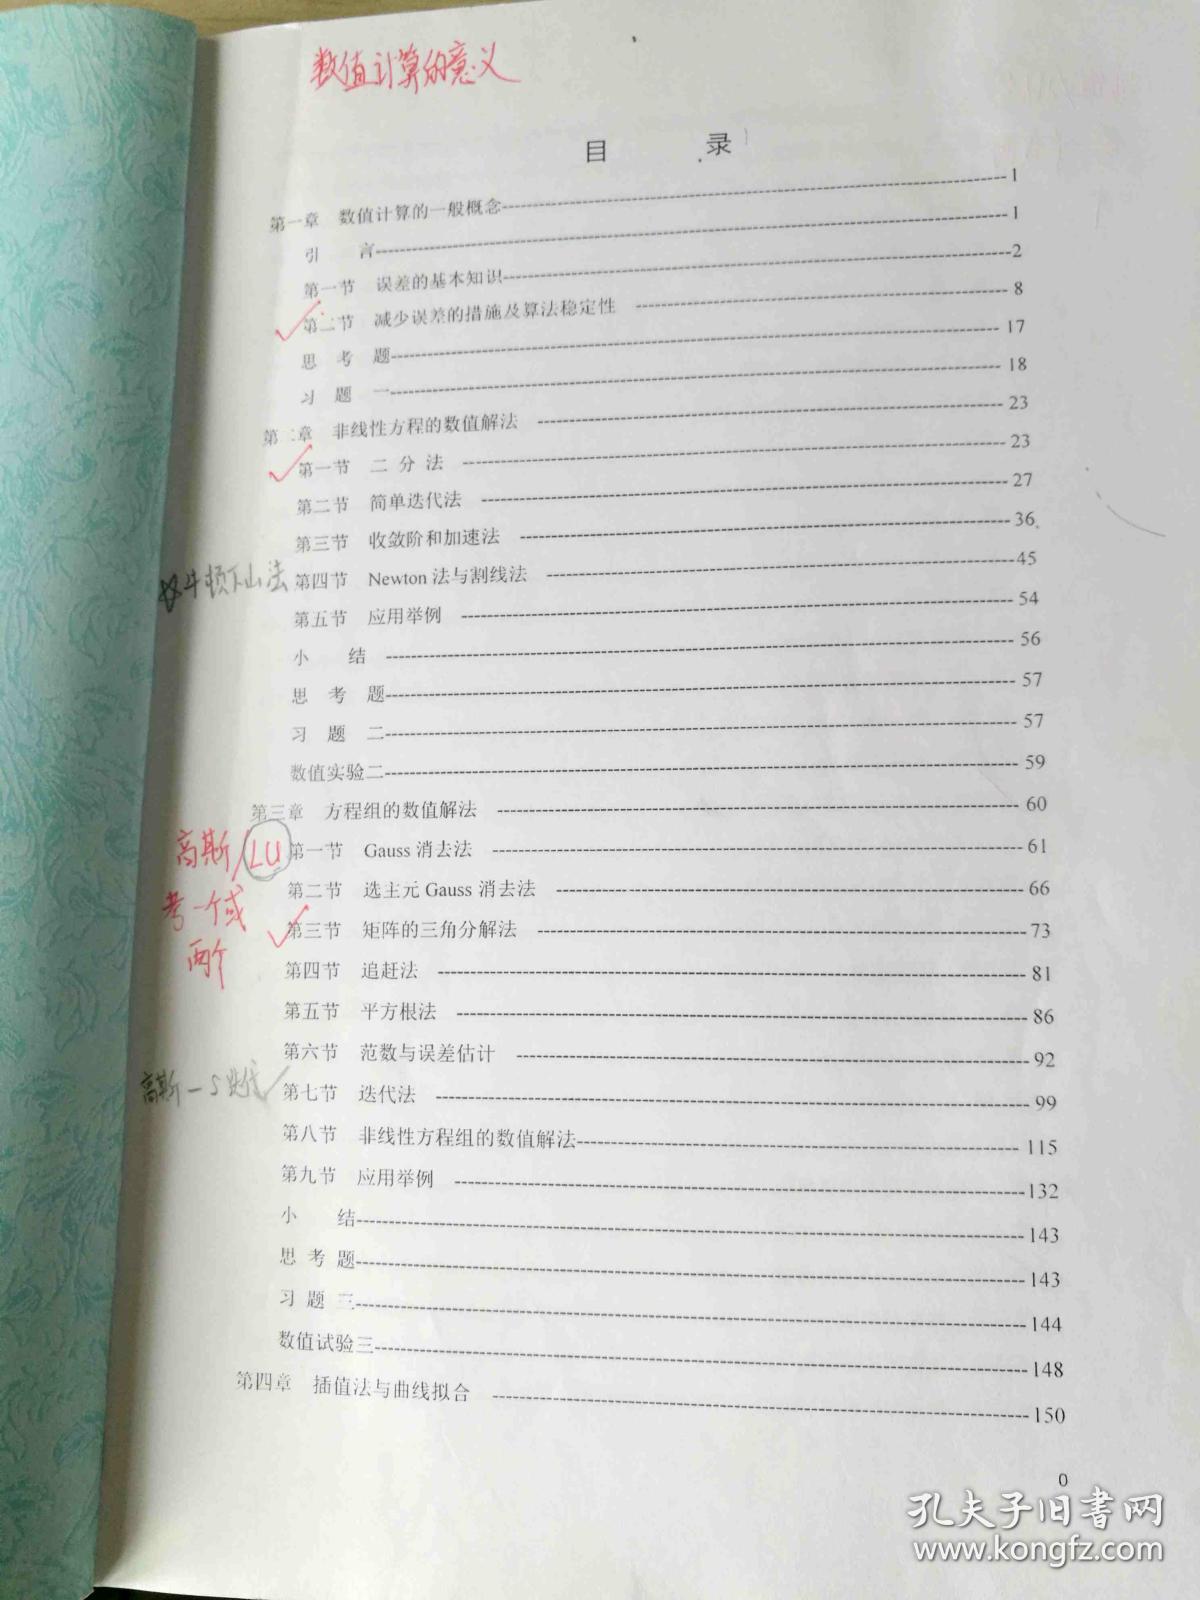 数值计算的意义
目 录
第一章 数值计算的一般概念 1
引 言 1
第一节 误差的基本知识 2
第二节 减少误差的措施及算法稳定性 8
思 考 题 17
习 题 一 18
第二章 非线性方程的数值解法 23
第一节 二 分 法 23
第二节 简单迭代法 27
第三节 收敛阶和加速法 36
牛顿下山法 第四节 Newton 法与割线法 45
第五节 应用举例 54
小 结 56
思 考 题 57
习 题 二 57
数值实验二 59
第三章 方程组的数值解法 60
高斯/LU 第一节 Gauss 消去法 61
考一个或 第二节 选主元 Gauss 消去法 66
两个 第三节 矩阵的三角分解法 73
第四节 追赶法 81
第五节 平方根法 86
第六节 范数与误差估计 92
高斯-S迭代 第七节 迭代法 99
第八节 非线性方程组的数值解法 115
第九节 应用举例 132
小 结 143
思 考 题 143
习 题 三 144
数值试验三 148
第四章 插值法与曲线拟合 150
0
孔夫子旧书网
www.kongfz.com